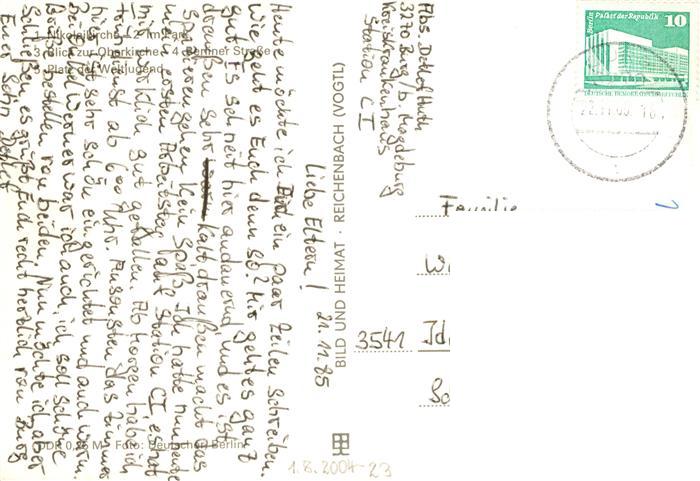 1. Nikolaikirche · 2. Im Park
3. Blick zur Oberkirche · 4. Berliner Straße
5. Platz der Weltjugend
Liebe Eltern!
21.11.85
Heute möchte ich Euch ein paar Zeilen schreiben.
Wie geht es Euch denn so? Mir geht es ganz
gut. Es schneit hier andauernd, und es ist
draußen sehr kalt, draußen macht das
Spazierengehen kein Spaß. Ich hatte nun heute
mein ersten Arbeitstag auf Station CI, es hat
mir wirklich gut gefallen. Ab morgen hab ich
Frühdienst ab 6.00 Uhr. Ansonsten das Zimmer
hier ist sehr schön eingerichtet und auch warm.
Bei Werner war ich auch, ich soll schöne
Grüße bestellen von beiden. Nun möchte ich aber
Schließen, es grüßt Euch recht herzlich von Burg
Euer Sohn Detlef
DDR 0,25 M · Foto: Deutscher, Berlin
BILD UND HEIMAT · REICHENBACH (VOGTL)
Abs. Detlef Huth
3270 Burg/b. Magdeburg
Kreiskrankenhaus
Station CI
Berlin Palast der Republik 10
DEUTSCHE DEMOKRATISCHE REPUBLIK
Familie
3541
1.8.2004-23